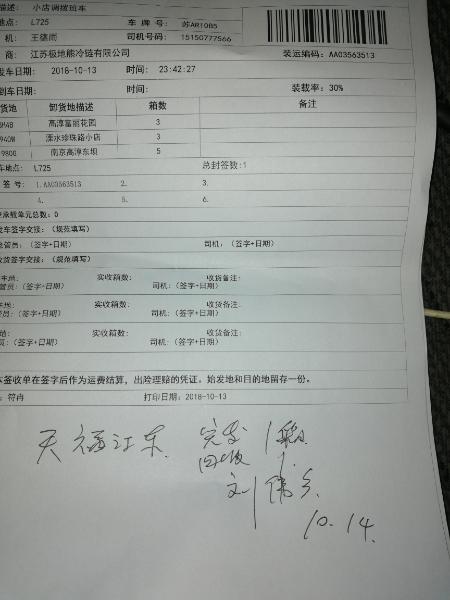 描述: 小店调拨班车
地点: L725 车牌号: 苏AR10B5
机: 王德雨 司机号码: 15150777566
商: 江苏极地熊冷链有限公司 装运编码: AA03563513
发车日期: 2018-10-13 时间: 23:42:27
到车日期: 时间: 装载率: 30%
货地 卸货地描述 箱数 备注
M4B 高淳富丽花园 3
940W 溧水珍珠路小店 3
980G 南京高淳东坝 5
车地点: L725 总封签数:1
签号: 1.AA03563513 2. 3.
4. 5. 6.
承载单元总数: 0
发车签字交接: (规范填写)
管员: (签字+日期) 司机: (签字+日期)
收货签字交接: (规范填写)
车地: 实收箱数: 收货备注:
管员: (签字+日期) 司机: (签字+日期)
车地: 实收箱数: 收货备注:
员: (签字+日期) 司机: (签字+日期)
地: 实收箱数: 收货备注:
员: (签字+日期) 司机: (签字+日期)
本签收单在签字后作为运费结算，出险理赔的凭证。始发地和目的地留存一份。
: 符冉 打印日期: 2018-10-13
天福江东
刘
10.14.